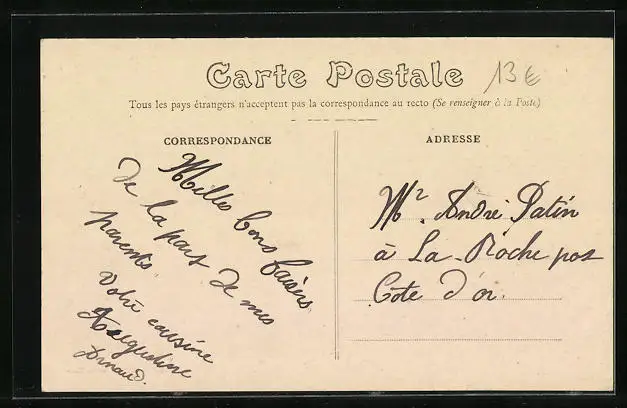 Carte Postale
13€
Tous les pays étrangers n'acceptent pas la correspondance au recto (Se renseigner à la Poste)
CORRESPONDANCE
Milles bons baisers
de la part de mes
parents.
Votre cousine
Augustine
Arnaud.
ADRESSE
Mr. André Patin
à La-Roche pot
Cote d'or.